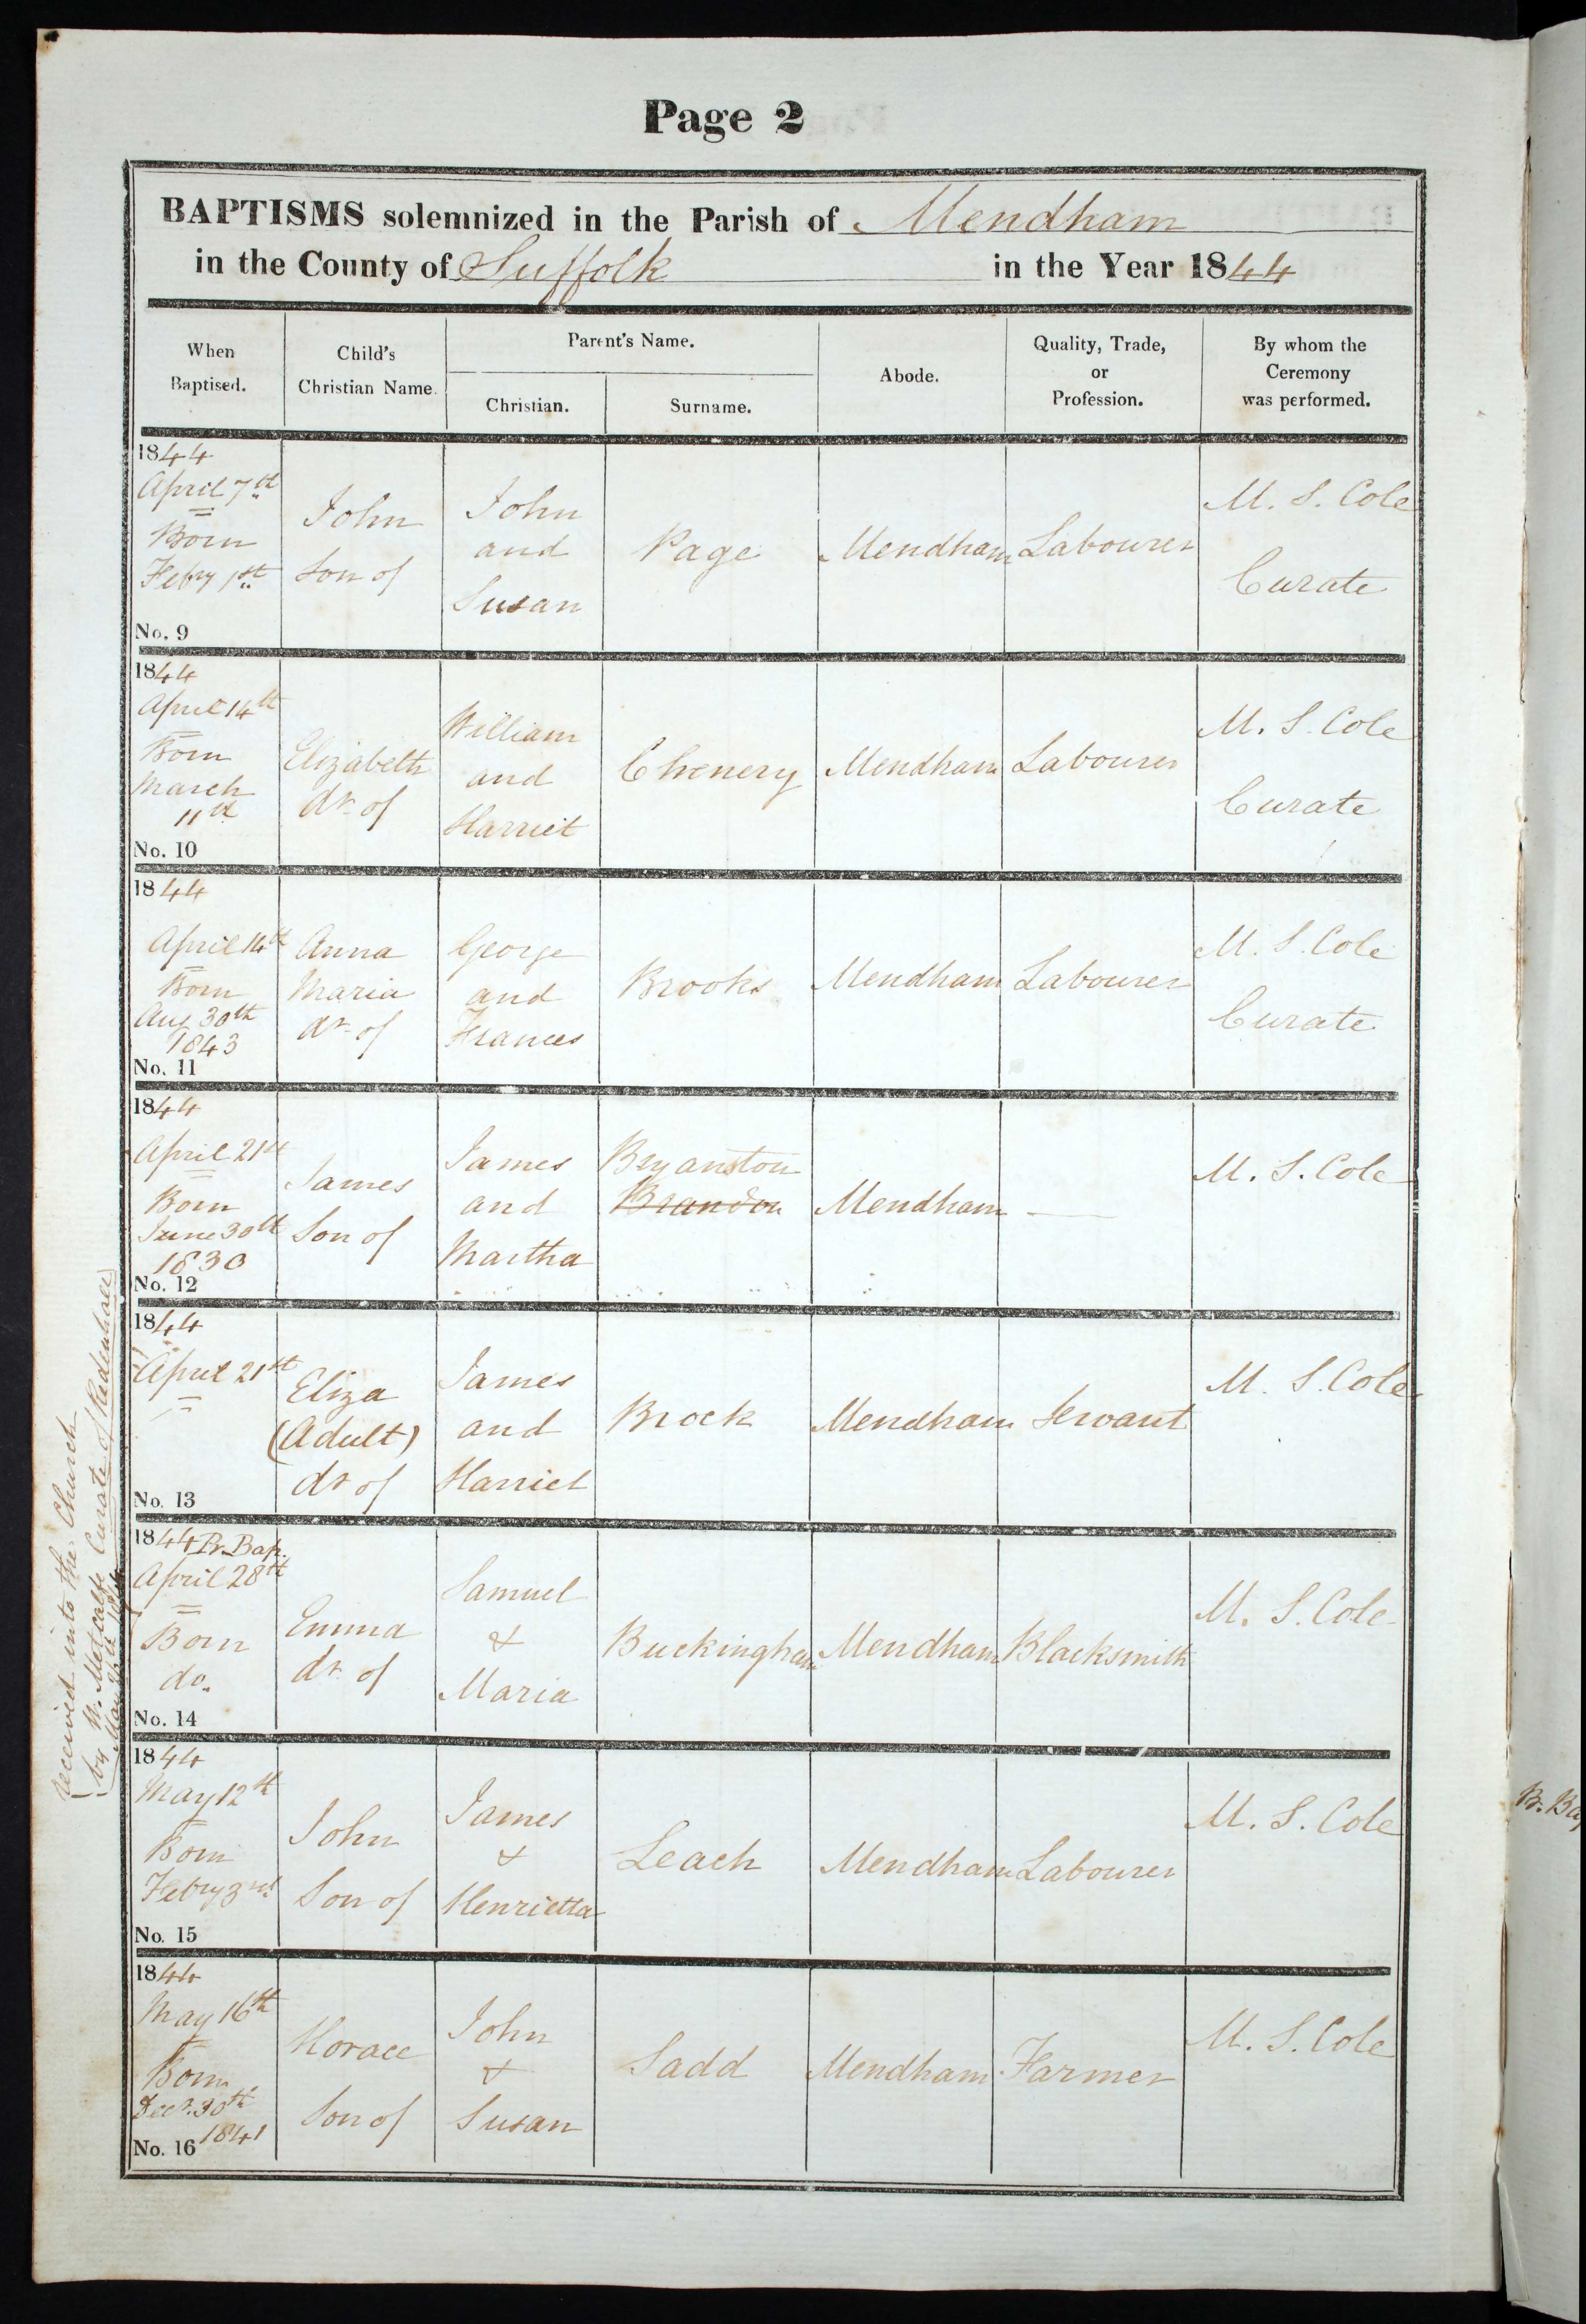 Page 2
BAPTISMS solemnized in the Parish of Mendham
in the County of Suffolk in the Year 1844
When Baptised. Child's Christian Name. Parent's Name. Christian. Surname. Abode. Quality, Trade, or Profession. By whom the Ceremony was performed.
1844
April 7th
Born
Febry 1st
No. 9
John
Son of
John
and
Susan
Page
Mendham
Labourer
M. S. Cole
Curate
1844
April 14th
Born
March
11th
No. 10
Elizabeth
dr. of
William
and
Harriet
Chenery
Mendham
Labourer
M. S. Cole
Curate
1844
April 14th
Born
Aug 30th
1843
No. 11
Anna
Maria
dr. of
George
and
Frances
Brooks
Mendham
Labourer
M. S. Cole
Curate
1844
April 21st
Born
June 30th
1830
No. 12
James
Son of
James
and
Martha
Bryanston
Brandon
Mendham
—
M. S. Cole
1844
April 21st
No. 13
Eliza
(Adult)
dr of
James
and
Harriet
Brock
Mendham
Servant
M. S. Cole
1844 Pr. Bap.
April 28th
Born
do.
No. 14
Emma
dr. of
Samuel
&
Maria
Buckingham
Mendham
Blacksmith
M. S. Cole
received into the Church
by W. Metcalfe Curate of Redenhall)
1844
May 12th
Born
Febry 3rd
No. 15
John
Son of
James
&
Henrietta
Leach
Mendham
Labourer
M. S. Cole
1844
May 16th
Born
Decr. 30th
1841
No. 16
Horace
Son of
John
&
Susan
Sadd
Mendham
Farmer
M. S. Cole